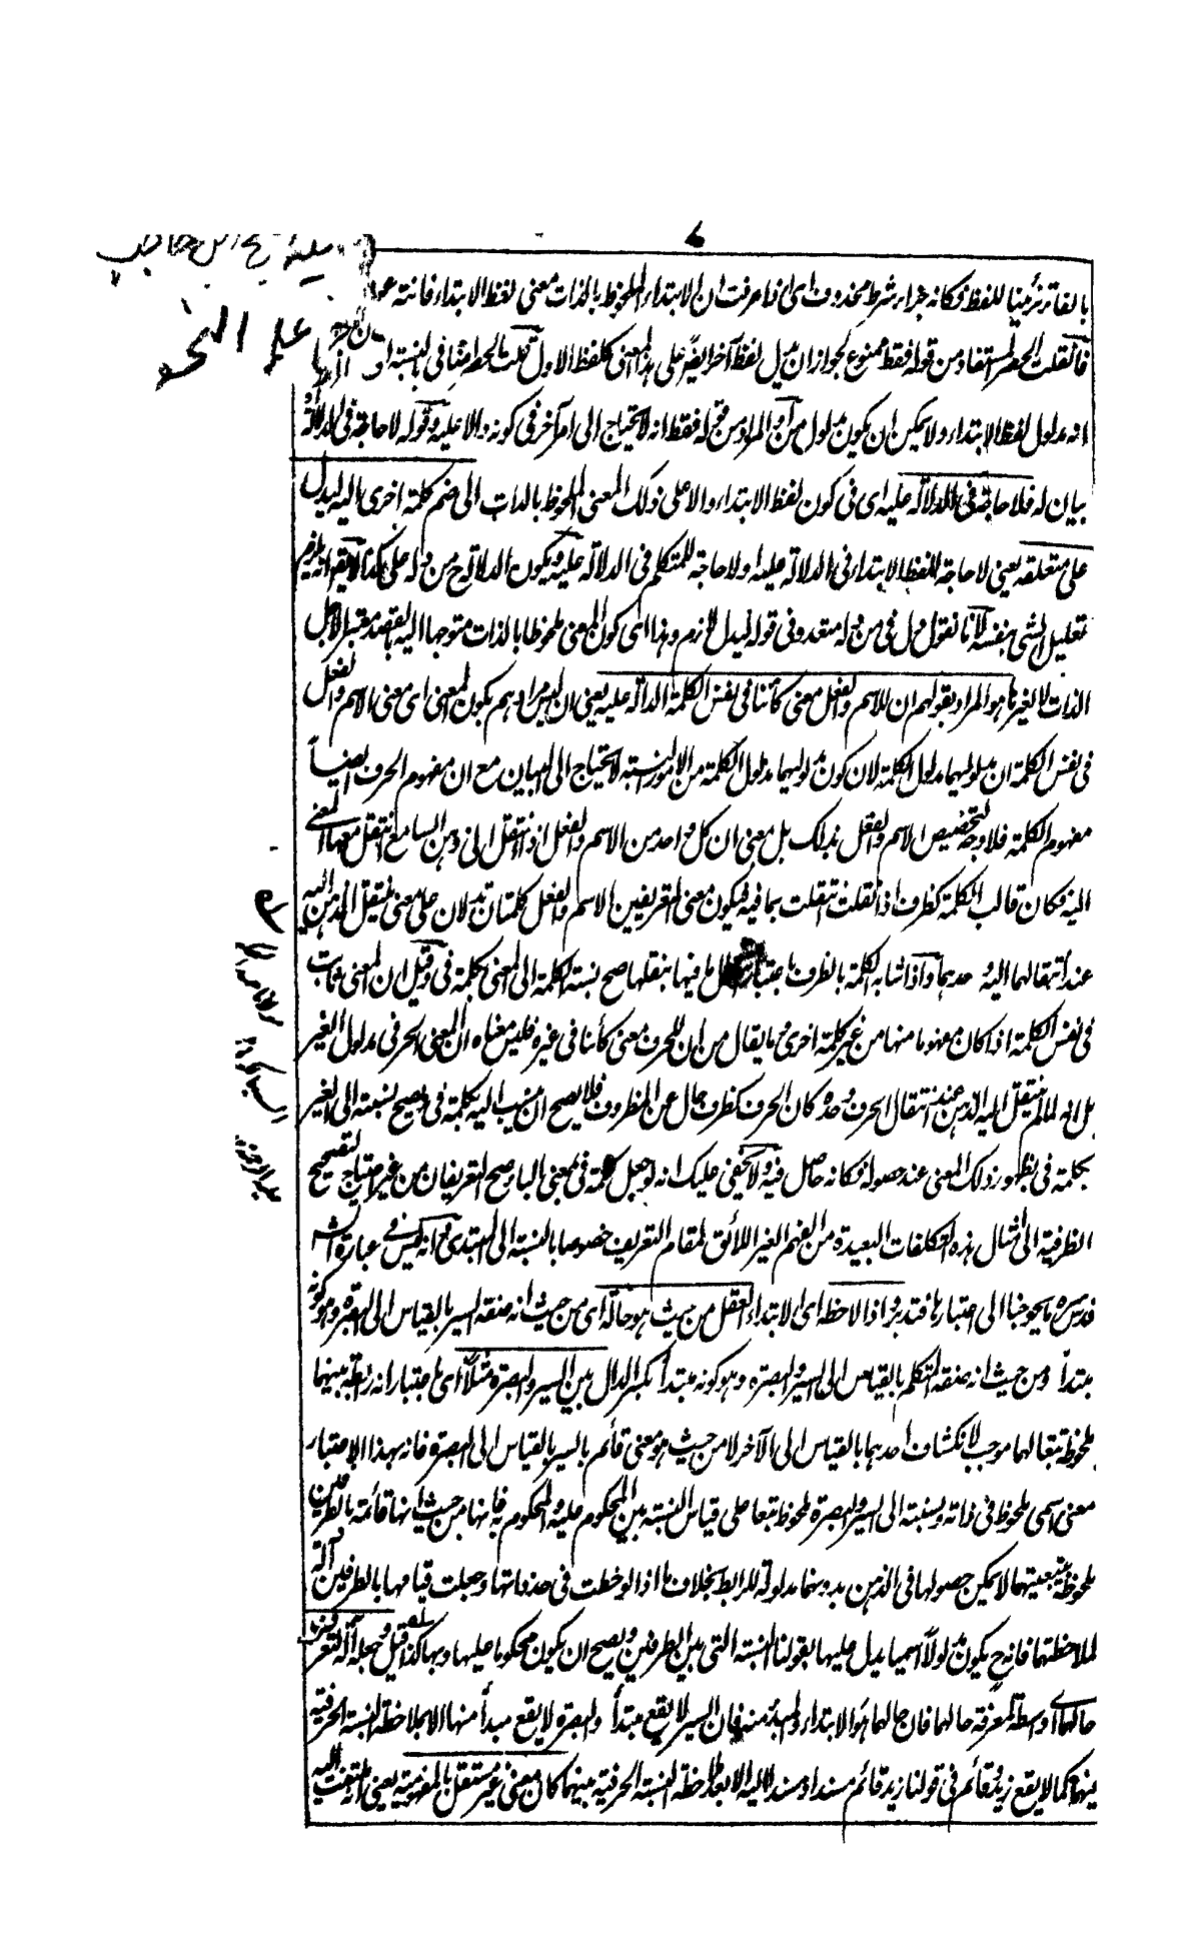 ٦
علم النحو
بالفاء ترتيبا للفظ وكانه جزاء شرط محذوف اى اذا عرفت ان الابتداء الملحوظ بالذات معنى لفظ الابتداء فانته
فان قلت الحصر المستفاد من قوله فقط ممنوع لجواز ان يدل لفظ آخر ايضا على هذا المعنى كلفظ الاول قلت الحصر اضافى بالنسبة
انه مدلول لفظ الابتداء ولا يمكن ان يكون مدلول من او المراد من قوله فقط انه لا يحتاج الى امر آخر فى كونه دالا عليه وقوله لا حاجة فى الدلالة
بيان له فلا حاجة فى الدلالة عليه اى فى كون لفظ الابتداء دالا على ذلك المعنى الملحوظ بالذات الى ضم كلمة اخرى اليه ليدل
على متعلقه يعنى لا حاجة للفظ الابتداء فى الدلالة عليه او لا حاجة للمتكلم فى الدلالة عليه ويكون الدلالة ح من دله على كذا لا يقال انه يلزم
تعليل الشئ بنفسه لانا نقول دل فى من دله متعد وفى قوله ليدل لازم وهذا اى كون المعنى ملحوظا بالذات متوجها اليه بالقصد معتبرا لاجل
الذات لا لغيرها هو المراد بقولهم ان للاسم والفعل معنى كائنا فى نفس الكلمة الدالة عليه يعنى ان ليس مرادهم بكون المعنى اى معنى الاسم والفعل
فى نفس الكلمة ان مدلوليهما مدلول الكلمة لان كون مدلوليهما مدلول الكلمة من الامور البينة لا يحتاج الى البيان مع ان مفهوم الحرف ايضا
مفهوم الكلمة فلا وجه لتخصيص الاسم والفعل بذلك بل معنى ان كل واحد من الاسم والفعل اذا انتقل الى ذهن السامع انتقل معها المعنى
اليه فكان قالب الكلمة كظرف اذا نقلت انتقلت بما فيه فيكون معنى التعريفين الاسم والفعل كلمتان تدلان على معنى ينتقل الذهن اليه
عند انتقالهما اليه وحدهما واذا شابه الكلمة بالظرف باعتبار انتقال ما فيها بنقلها صح نسبة الكلمة الى المعنى بكلمة فى وقيل ان المعنى ثابت
فى نفس الكلمة اذا كان مفهوما منها من غير كلمة اخرى وما يقال من ان للحرف معنى كائنا فى غيره فليس معناه ان المعنى الحرفى مدلول الغير
بل انه لما لم ينتقل اليه الذهن عند انتقال الحرف وحده كان الحرف كظرف خال عن المظروف فلا يصح ان ينسب اليه بكلمة فى ويصح نسبته الى الغير
بكلمة فى بظهور ذلك المعنى عند حصوله فكانه حاصل فيه ولا يخفى عليك انه لو جعل كلمة فى بمعنى الباء صح التعريفان من غير احتياج لتصحيح
الظرفية الى امثال هذه التكلفات البعيدة من الفهم الغير اللائق لمقام التعريف خصوصا بالنسبة الى المبتدى مع انه ليس فى عبارة الش
قدس سره ما يحوجنا الى اعتبارها فتدبر واذا لاحظه اى الابتداء العقل من حيث هو حالة اى من حيث انه صفة السير بالقياس الى البصرة وهو كونه
مبتدأ ومن حيث انه صفة المتكلم بالقياس الى السير والبصرة وهو كونه مبتدأ بكسر الدال بين السير والبصرة مثلا اى باعتبار انه رابطة بينهما
ملحوظ تبعا لهما موجب لانكشاف احدهما بالقياس الى الآخر لا من حيث هو معنى قائم بالسير بالقياس الى البصرة فانه بهذا الاعتبار
معنى اسمى ملحوظ فى ذاته ونسبته الى السير والبصرة ملحوظ تبعا على قياس النسبة بين المحكوم عليه والمحكوم به فانها من حيث انها قائمة بالطرفين
ملحوظة بتبعيتهما لا يمكن حصولها فى الذهن بدونهما مدلولة للرابط بخلاف ما اذا لوحظت فى حد ذاتها وجعلت قيامها بالطرفين آلة
لملاحظتهما فانه ح يكون مدلولا اسميا يدل عليها بقولنا النسبة التى بين الطرفين ويصح ان يكون محكوما عليها وبها كذا قيل وجعله آلة لتعرف
حالهما اى واسطة لمعرفة حالهما فان حالهما هو الابتداء والمبتدأ منه فان السير لا يقع مبتدأ والبصرة لا يقع مبدأ منها الا بملاحظة النسبة الحرفية
بينهما كما لا يقع زيد وقائم فى قولنا زيد قائم مسندا ومسندا اليه الا بعد ملاحظة النسبة الحرفية بينهما كان معنى غير مستقل بالمفهومية يعنى لا يلتفت اليه